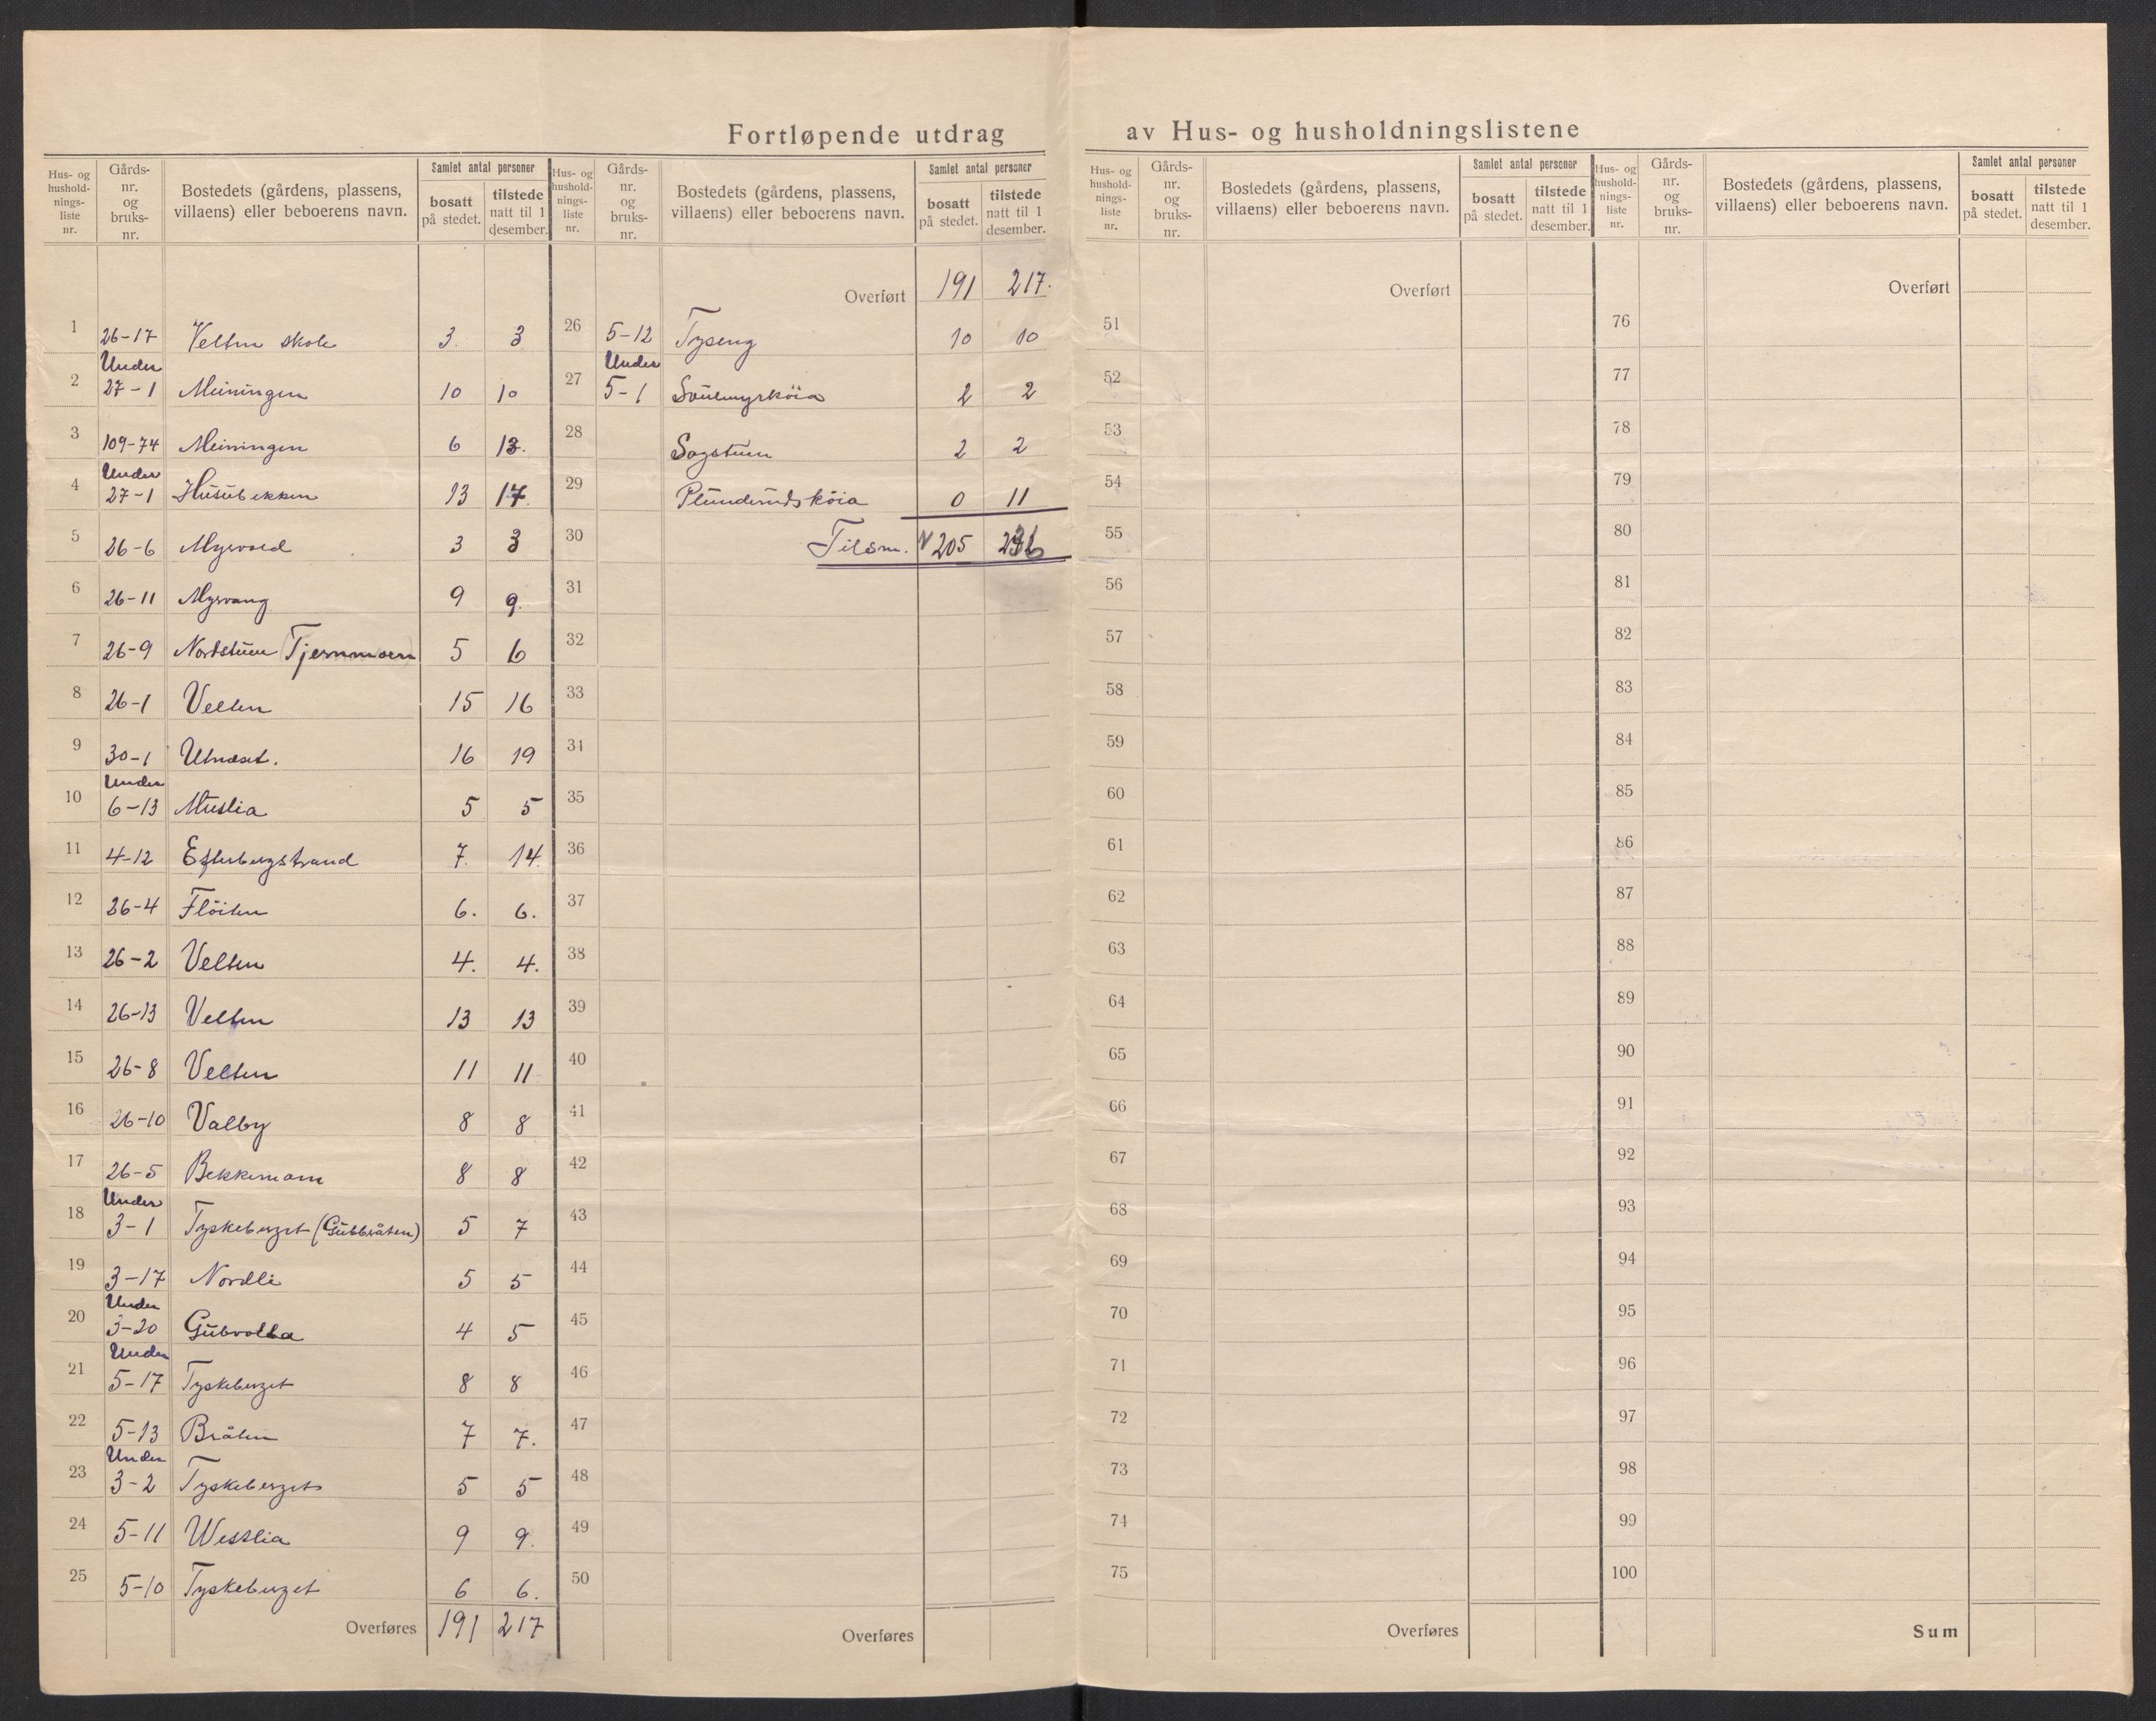 Fortløpende utdrag av Hus- og husholdningslistene
Hus- og hushold- nings- liste nr. | Gårds- nr. og bruks- nr. | Bostedets (gårdens, plassens, villaens) eller beboerens navn. | Samlet antal personer | bosatt på stedet. | tilstede natt til 1 desember.
1 26-17 Velten skole 3. 3
2 Under 27-1 Meiningen 10 10
3 109-74 Meiningen 6 13.
4 Under 27-1 Husubekken 13 17.
5 26-6 Myrvold 3 3
6 26-11 Myrvang 9 9.
7 26-9 Nordstuen (Tjernmoen) 5 6
8 26-1 Velten 15 16
9 30-1 Utnæset. 16 19
10 Under 6-13 Muslia 5 5
11 4-12 Efterbergstrand 7. 14.
12 26-4 Flöiten 6. 6.
13 26-2 Velten 4. 4.
14 26-13 Velten 13 13
15 26-8 Velten 11 11
16 26-10 Valby 8 8
17 26-5 Bekkemoen 8 8
18 Under 3-1 Tyskeberget (Gubbråten) 5 7
19 3-17 Nordli 5 5
20 Under 3-20 Gubvolla 4 5
21 Under 5-17 Tyskeberget 8 8
22 5-13 Bråten 7 7.
23 Under 3-2 Tyskeberget 5 5
24 5-11 Westlia 9 9.
25 5-10 Tyskeberget 6 6.
Overføres 191 217
Hus- og hushold- nings- liste nr. | Gårds- nr. og bruks- nr. | Bostedets (gårdens, plassens, villaens) eller beboerens navn. | Samlet antal personer | bosatt på stedet. | tilstede natt til 1 desember.
Overført 191 217.
26 5-12 Tyseng 10 10
27 Under 5-1 2 2
28 Sagstuen 2 2
29 0 11
30 Tilsm. 205
31
32
33
34
35
36
37
38
39
40
41
42
43
44
45
46
47
48
49
50
Overføres
Hus- og hushold- nings- liste nr. | Gårds- nr. og bruks- nr. | Bostedets (gårdens, plassens, villaens) eller beboerens navn. | Samlet antal personer | bosatt på stedet. | tilstede natt til 1 desember.
Overført
51
52
53
54
55
56
57
58
59
60
61
62
63
64
65
66
67
68
69
70
71
72
73
74
75
Overføres
Hus- og hushold- nings- liste nr. | Gårds- nr. og bruks- nr. | Bostedets (gårdens, plassens, villaens) eller beboerens navn. | Samlet antal personer | bosatt på stedet. | tilstede natt til 1 desember.
Overført
76
77
78
79
80
81
82
83
84
85
86
87
88
89
90
91
92
93
94
95
96
97
98
99
100
Sum